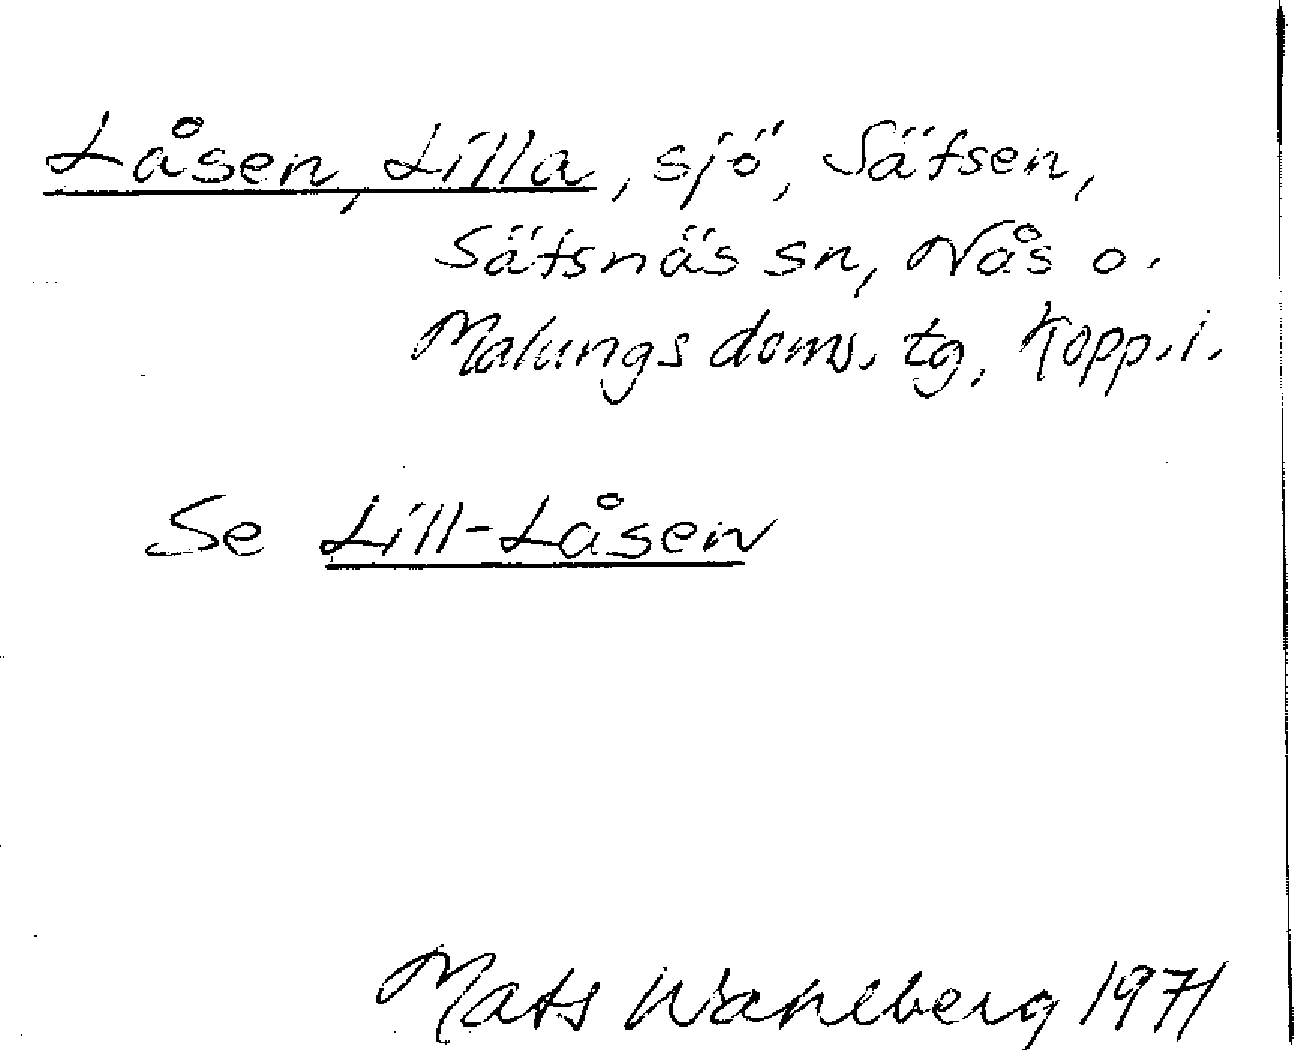 Låsen, Lilla, sjö, Sätsen,
Sätsnäs sn, Nås o.
Malungs doms. tg, Kopp. l.
Se Lill-Låsen
Mats Wahlberg 1971